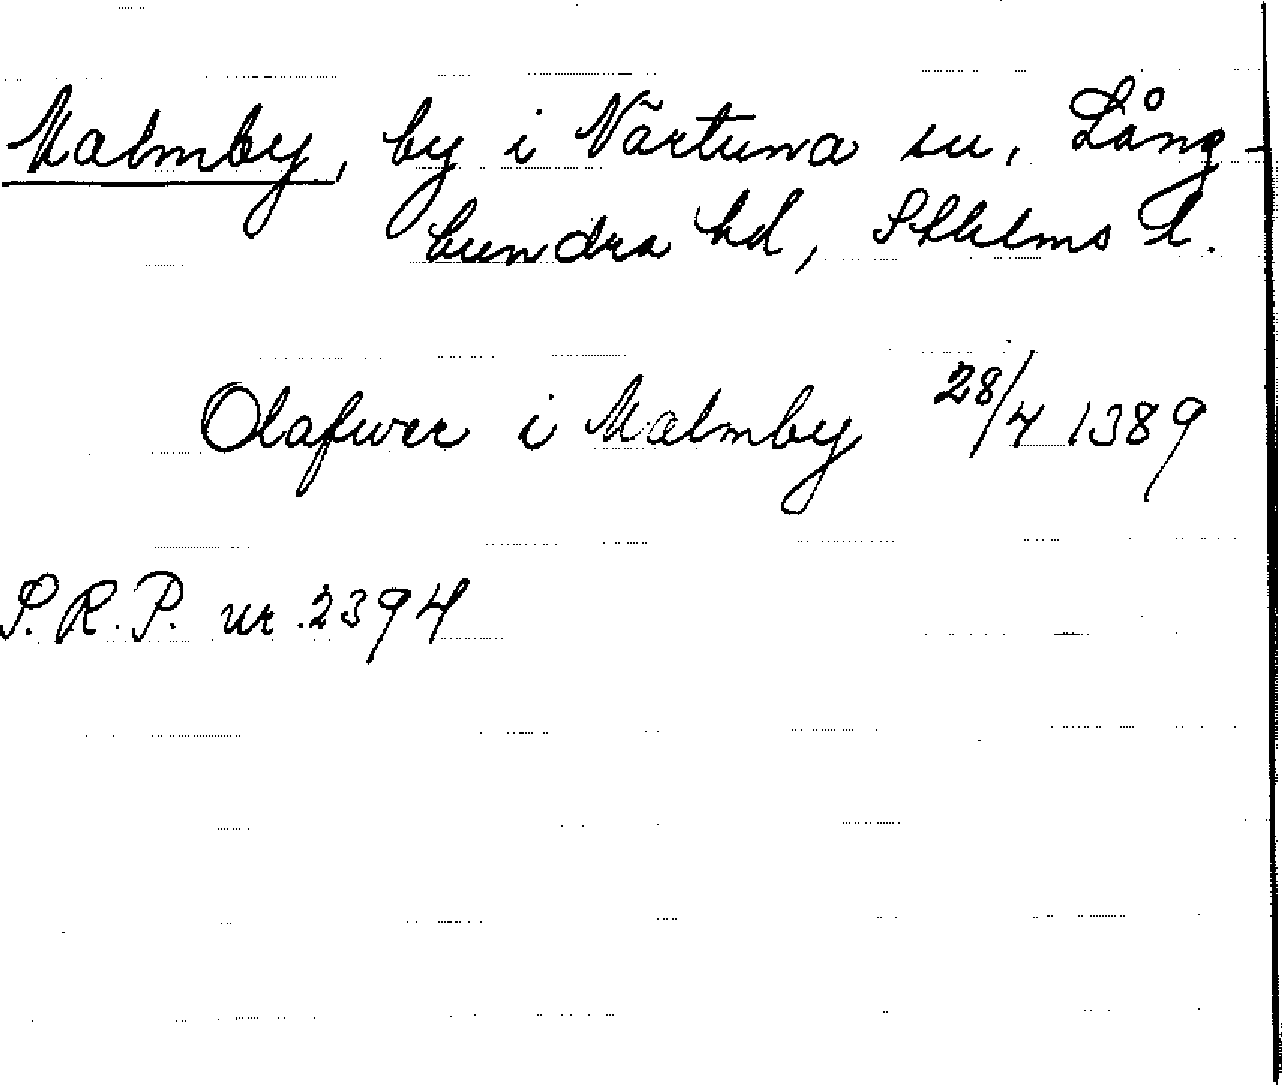 Malmby, by i Närtuna sn, Lång-
hundra hd, Sthlms l.
Olafwer i Malmby 28/4 1389
S.R.P. nr. 2394